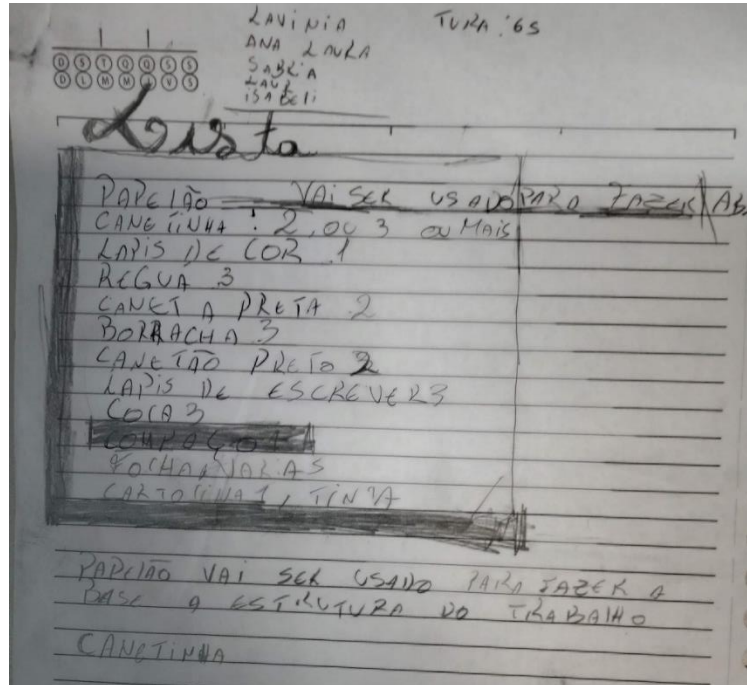 LAVINIA TURA: 65
ANA LAURA
SABRIA
LAUR
ISABELI
D S T Q Q S S
D L M M J V S
Lista
PAPELÃO VAI SER USADO PARA FAZER AB
CANETINHA: 2, OU 3 OU MAIS
LAPIS DE COR 1
REGUA 3
CANETA PRETA 2
BORRACHA 3
CANETÃO PRETO 2
LAPIS DE ESCREVER 3
COLA 3
VARAS
CARTOLINHA 1, TINTA
PAPELÃO VAI SER USADO PARA FAZER A
BASE A ESTRUTURA DO TRABALHO
CANETINHA